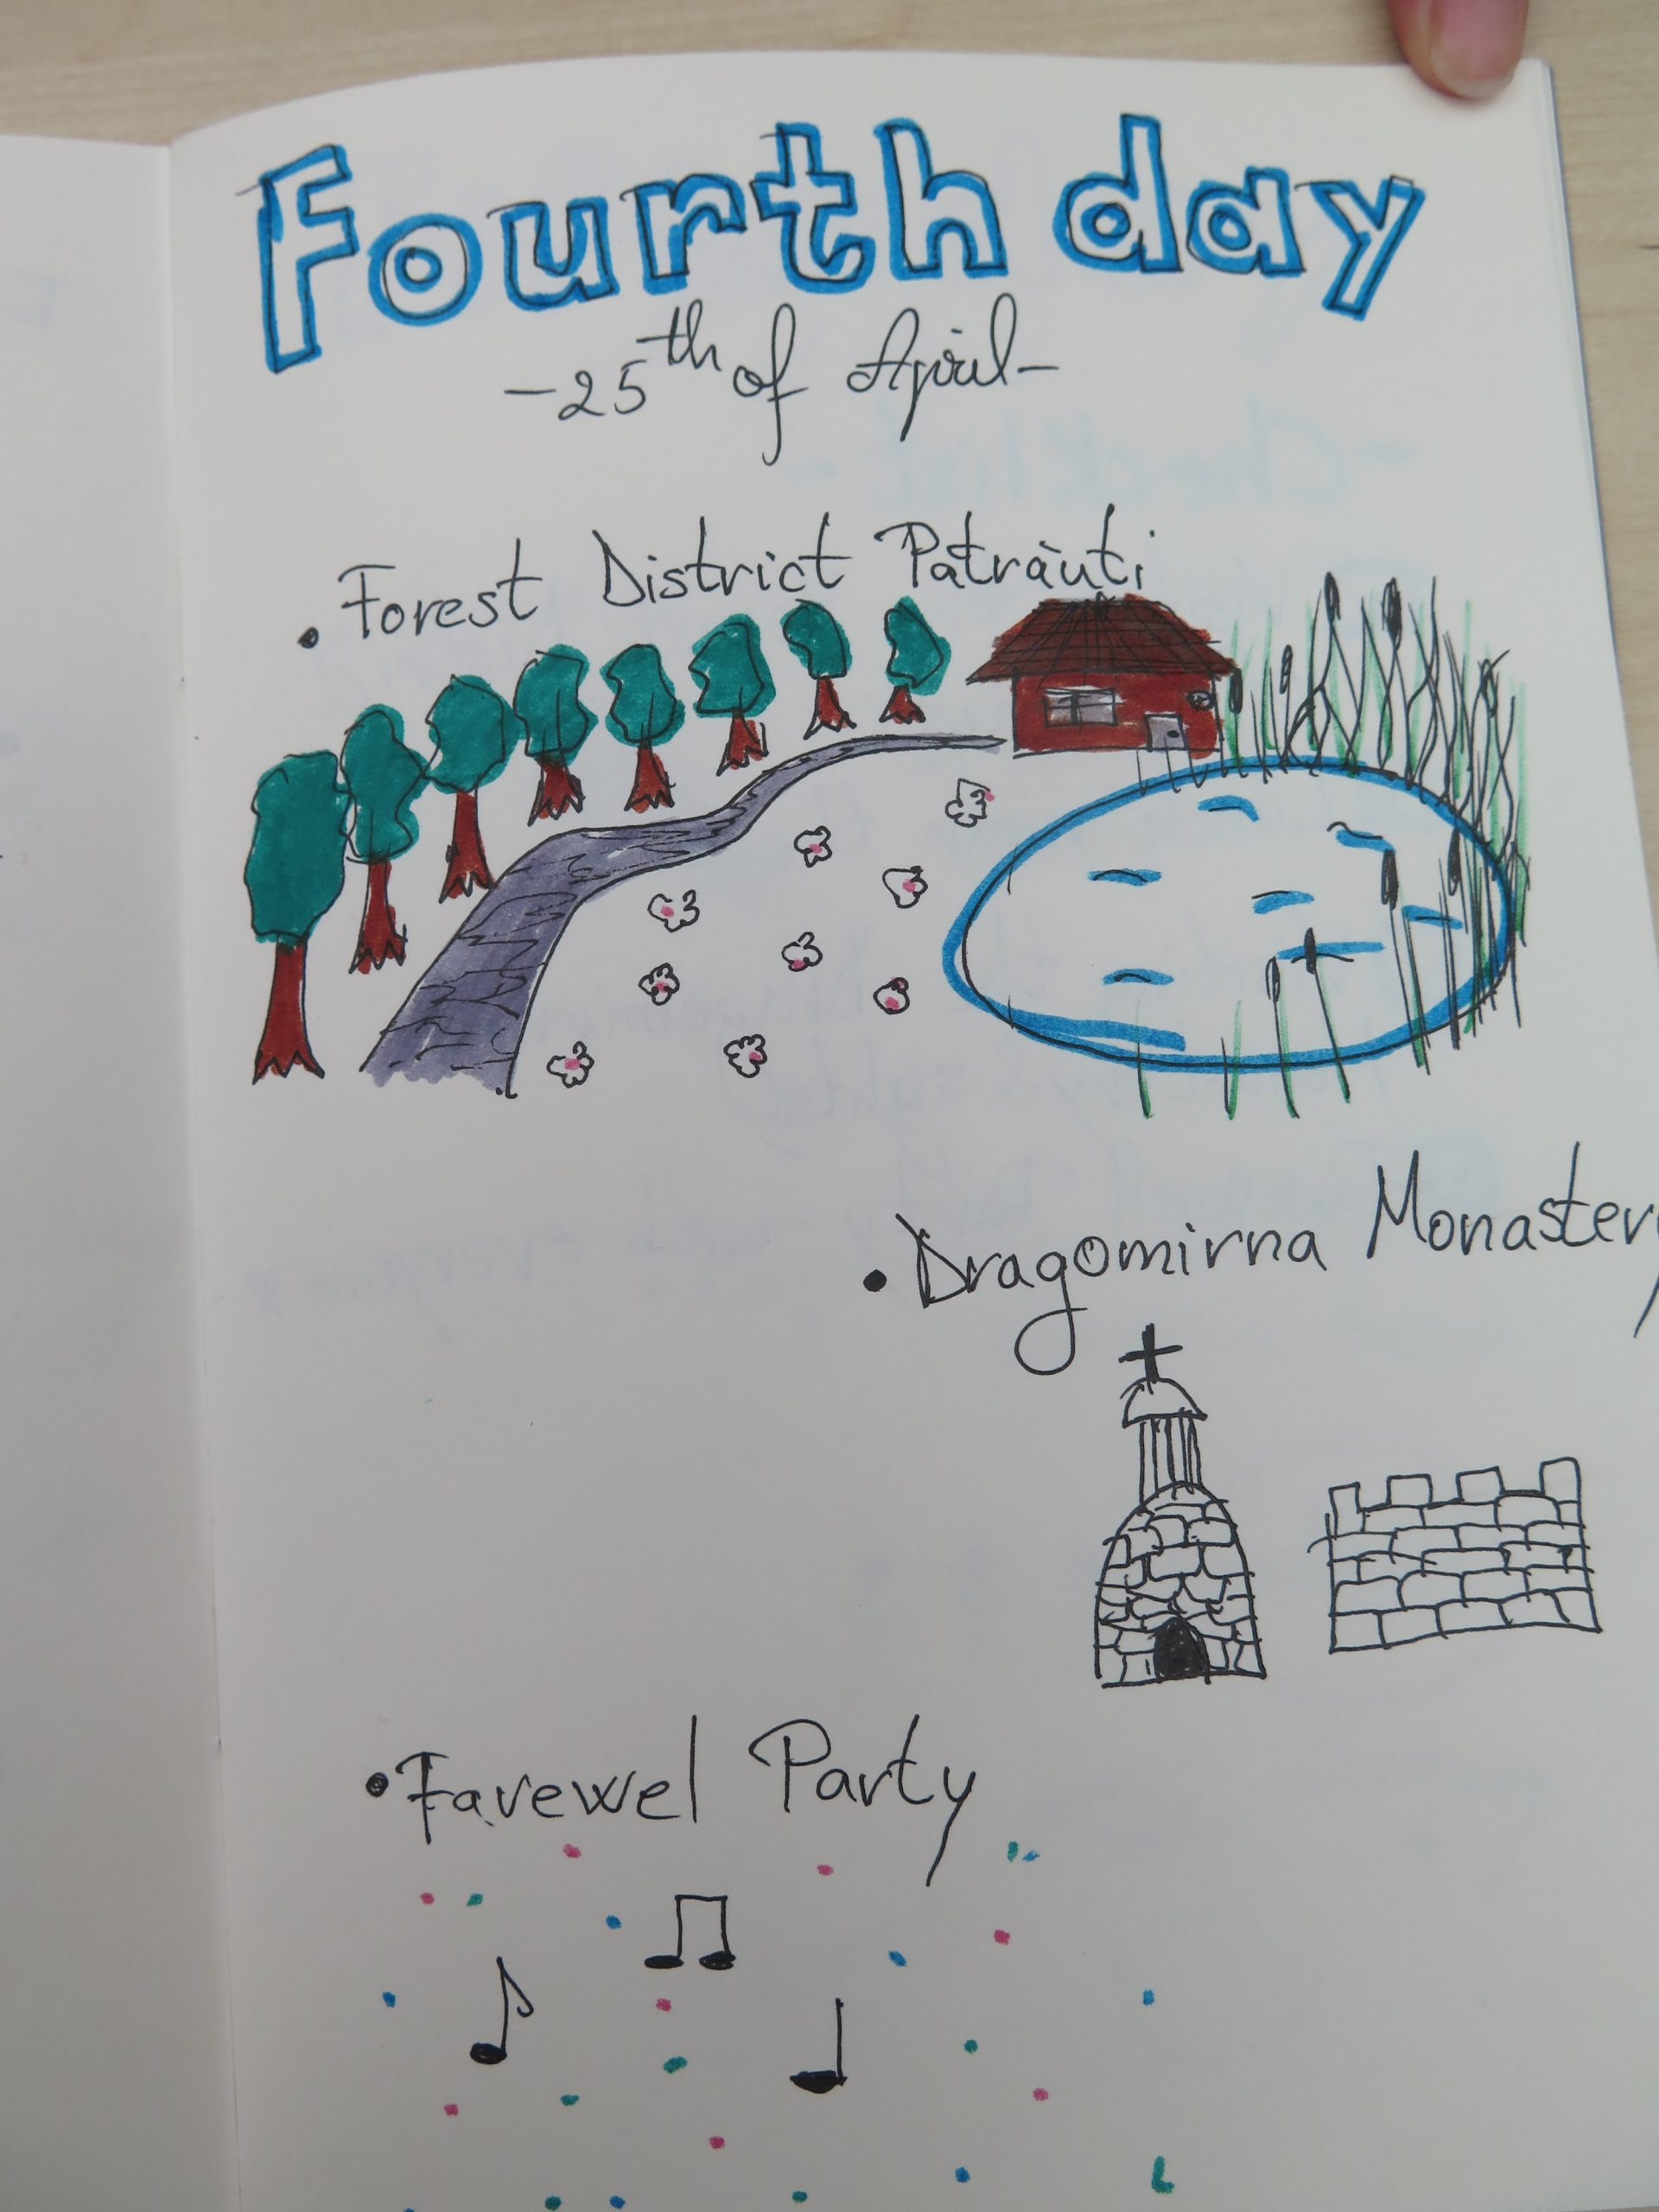 Fourth day
-25th of April-
• Forest District Pătrăuti
• Dragomirna Monastery
• Farewel Party